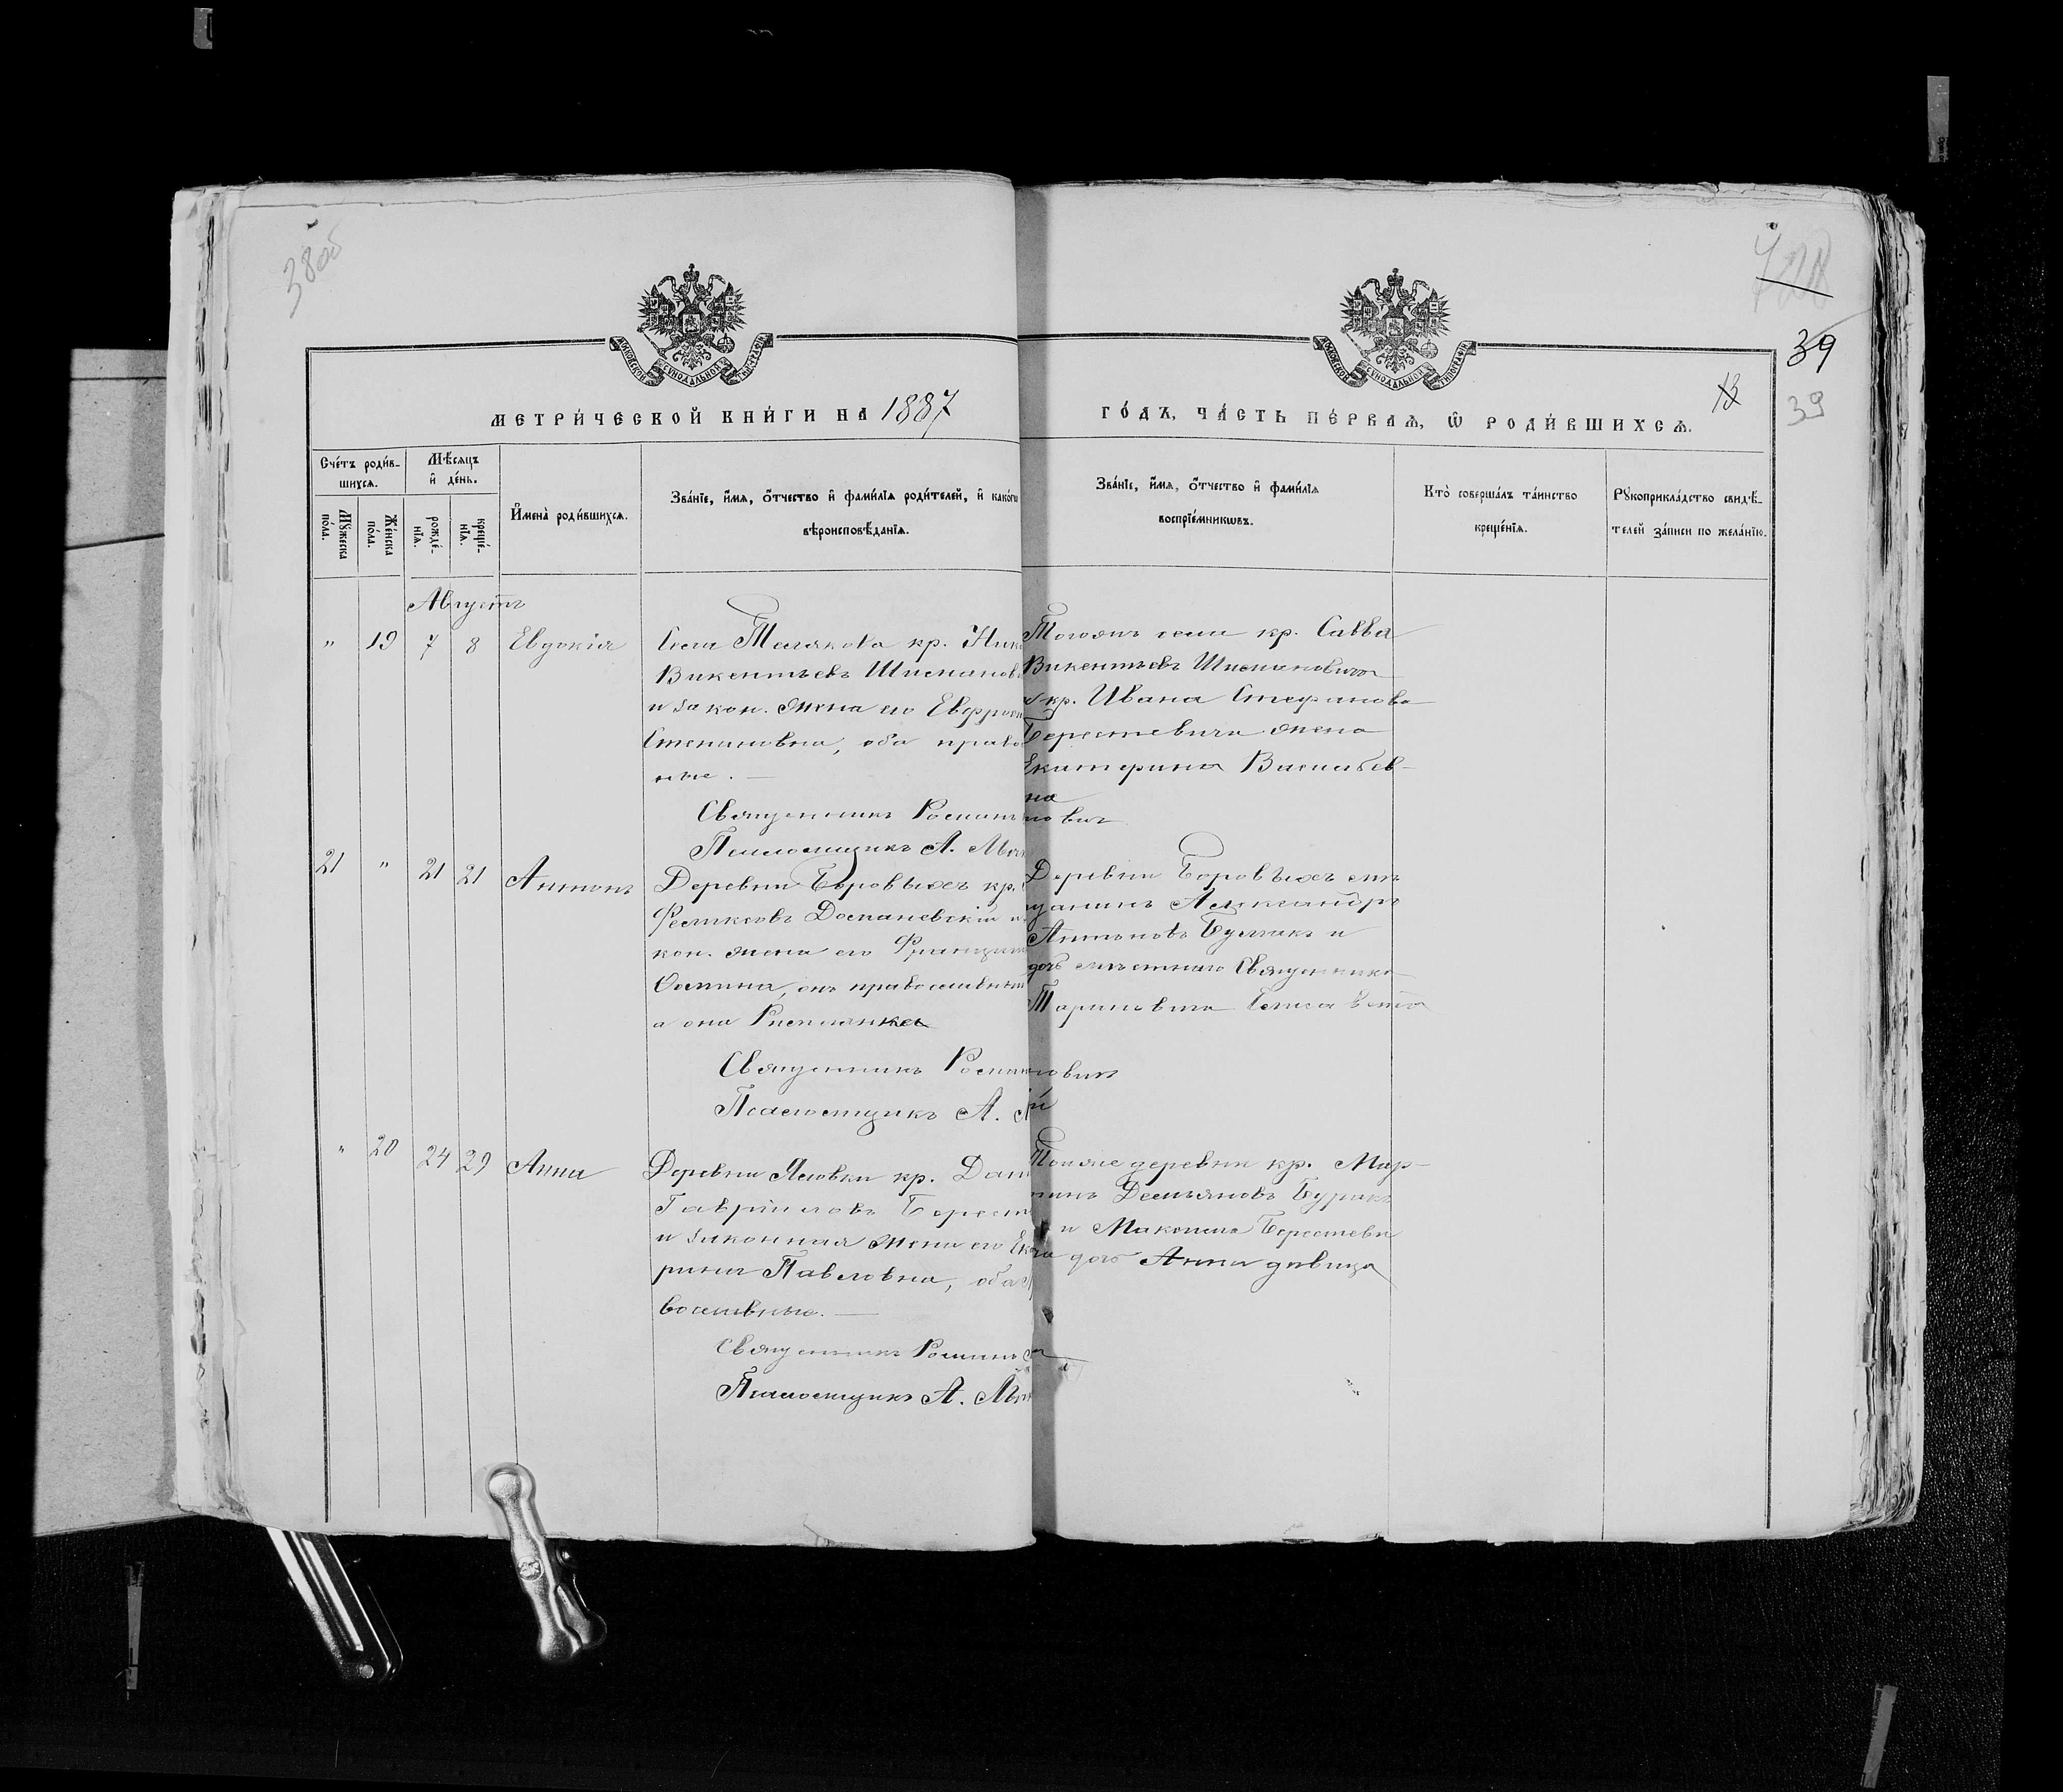 38 об
39
13
39
МОСКОВСКОЙ СѴНОДАЛЬНОЙ ТИПОГРАФІИ
МОСКОВСКОЙ СѴНОДАЛЬНОЙ ТИПОГРАФІИ
МЕТРИ́ЧЕСКОЙ КНИ́ГИ НА 1887
ГО́ДЪ, ЧА́СТЬ ПЕ́РВАѦ, Ѡ҆ РОДИ́ВШИХСѦ.
Сче́тъ роди́в-
шихсѧ.
Мꙋ́жеска по́ла.
Же́нска по́ла.
Мѣ́сѧцъ
и҆ де́нь.
рожде́-нїѧ.
креще́-нїѧ.
И҆мена̀ роди́вшихсѧ.
Зва́нїе, и҆́мѧ, ѻ҆́тчество и҆ фамı́лїѧ роди́телей, и҆ како́гш
вѣроисповѣ́данїѧ.
Зва́нїе, и҆́мѧ, ѻ҆́тчество и҆ фамı́лїѧ
воспрїе́мникѡвъ.
Кто̀ соверша́лъ та́инство
креще́нїѧ.
Рꙋкоприкла́дство свидѣ́-
телей за́писи по жела́нїю.
Августъ
" 19 7 8 Евдокія
Села Телякова кр. Нико
Викентьевъ Шиманов
и закон. жена его Евфрос
Степановна, оба право
ные. —
Священникъ Романо
Псаломщикъ А.
Тогожъ села кр. Савва
Викентьевъ Шимановичъ
и кр. Ивана Стефанова
Берестевича жена
Екатерина Василев-
на
новичъ
21 " 21 21 Антонъ
Деревни Боровыхъ кр.
Феликсовъ Доманевскій и
кон. жена его Францишк
Осипова, онъ православный
а она Римлянка
Священникъ Роман
Псаломщикъ А.
Деревни Боровыхъ мѣ
щанинъ Александръ
Антоновъ Булгакъ и
дочь мѣстнаго Священника
Елисавета
новичъ
й
" 20 24 29 Анна
Деревни Ясловки кр. Дан
Гавріиловъ Берест
и законная жена его Ека
рина Павловна, оба
вославные. —
Священникъ Романо
Псаломщикъ А.
Тоияже деревни кр. Мар-
тинъ Демьяновъ Буракъ
и Максима Берестеви
ча дочь Анна дѣвица